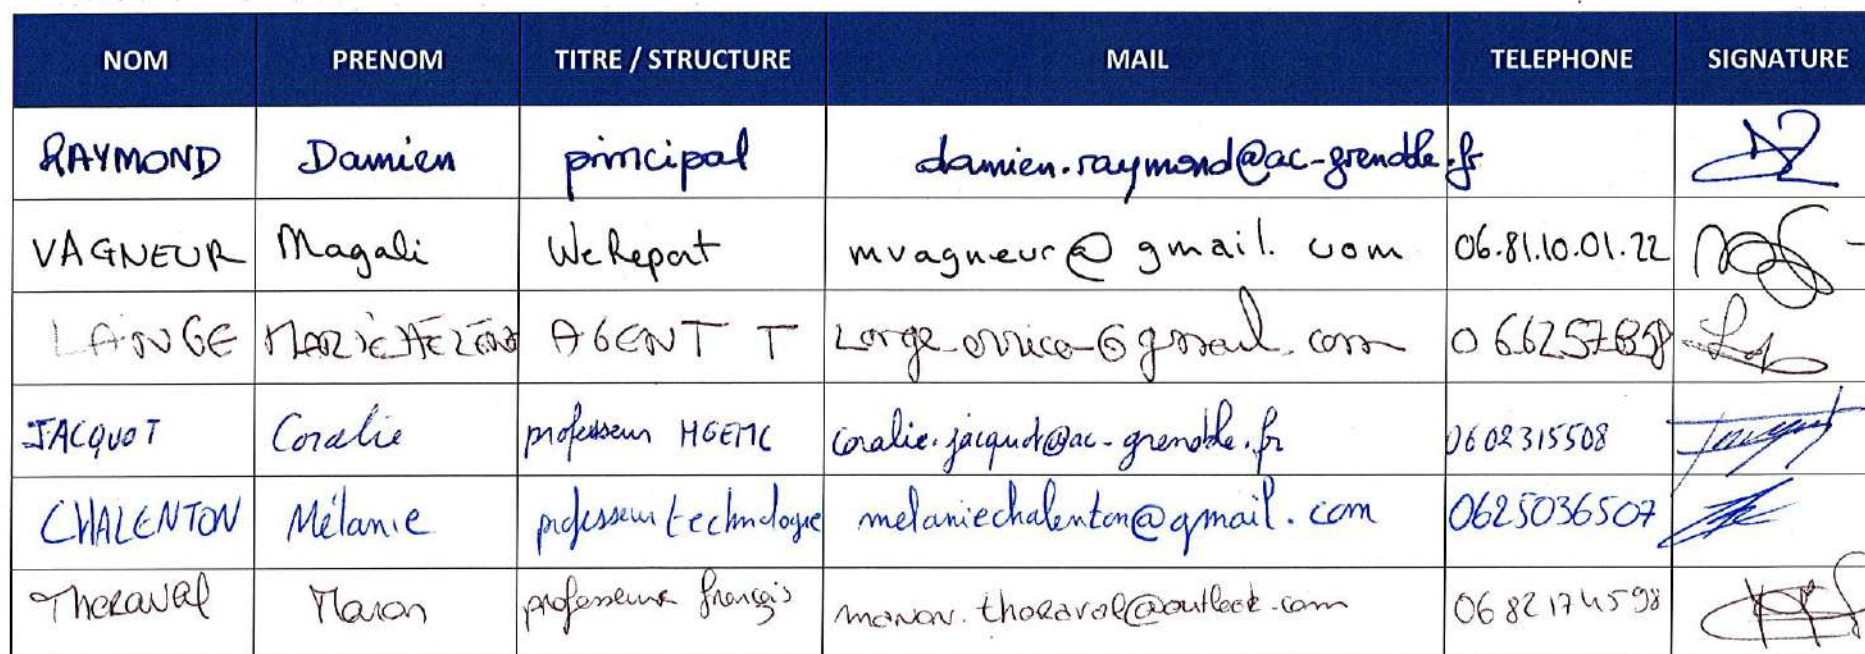 NOM PRENOM TITRE / STRUCTURE MAIL TELEPHONE SIGNATURE
RAYMOND Damien principal damien.raymond@ac-grenoble.fr
VAGNEUR Magali WeReport mvagneur@gmail.com 06.81.10.01.22
LANGE MARIE HELENE AGENT T
JACQUOT Coralie professeur HGEMC coralie.jacquot@ac-grenoble.fr 0602315508
CHALENTON Mélanie professeur technologie melaniechalenton@gmail.com 0625036507
THORAVAL Manon professeure français manon.thoraval@outlook.com 0682174598